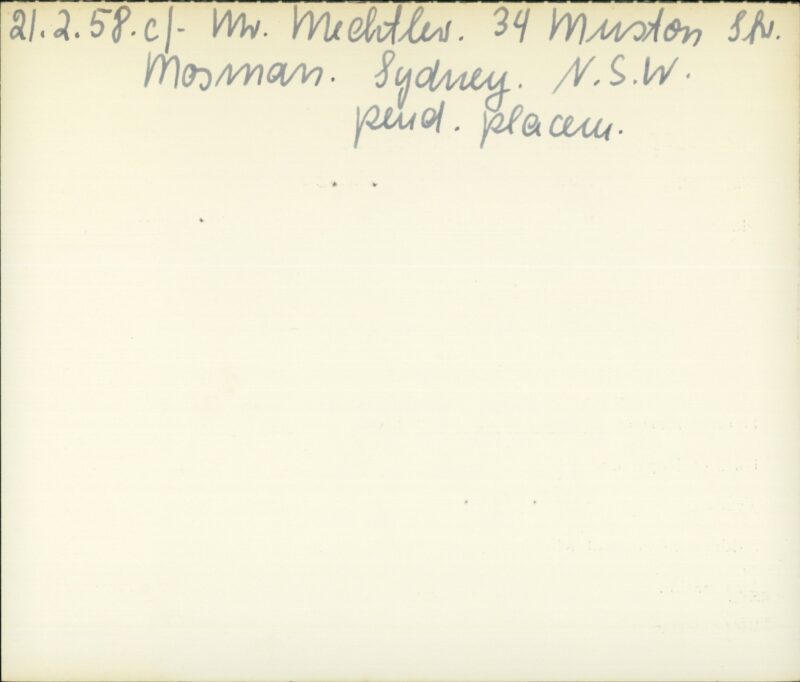 21.2.58. c/- Mr. Mechtler. 34 Muston Str.
Mosman. Sydney. N.S.W.
pend. placem.